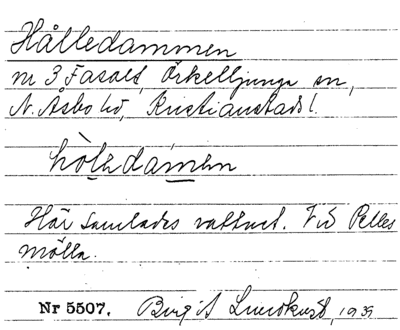 Hålledammen
nr 3 Fasalt, Örkelljunga sn,
N. Åsbo hd, Kristianstads l.
hòlədamən
Här samlades vattnet. Vid Pelles
mölla.
Nr 5507. Birgit Lundkvist, 1939